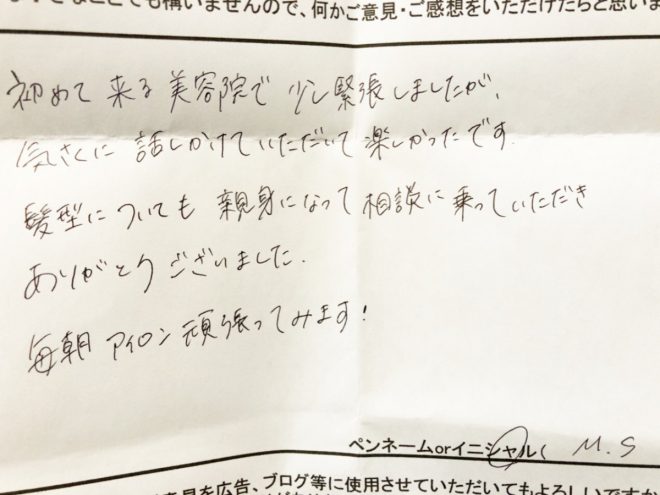 なことでも構いませんので、何かご意見・ご感想をいただけたらと思いま
初めて来る美容院で少し緊張しましたが、
気さくに話しかけていただいて楽しかったです.
髪型についても親身になって相談に乗っていただき
ありがとうございました.
毎朝アイロン頑張ってみます!
ペンネームorイニシャル( M.S
意見を広告、ブログ等に使用させていただいてもよろしいですか